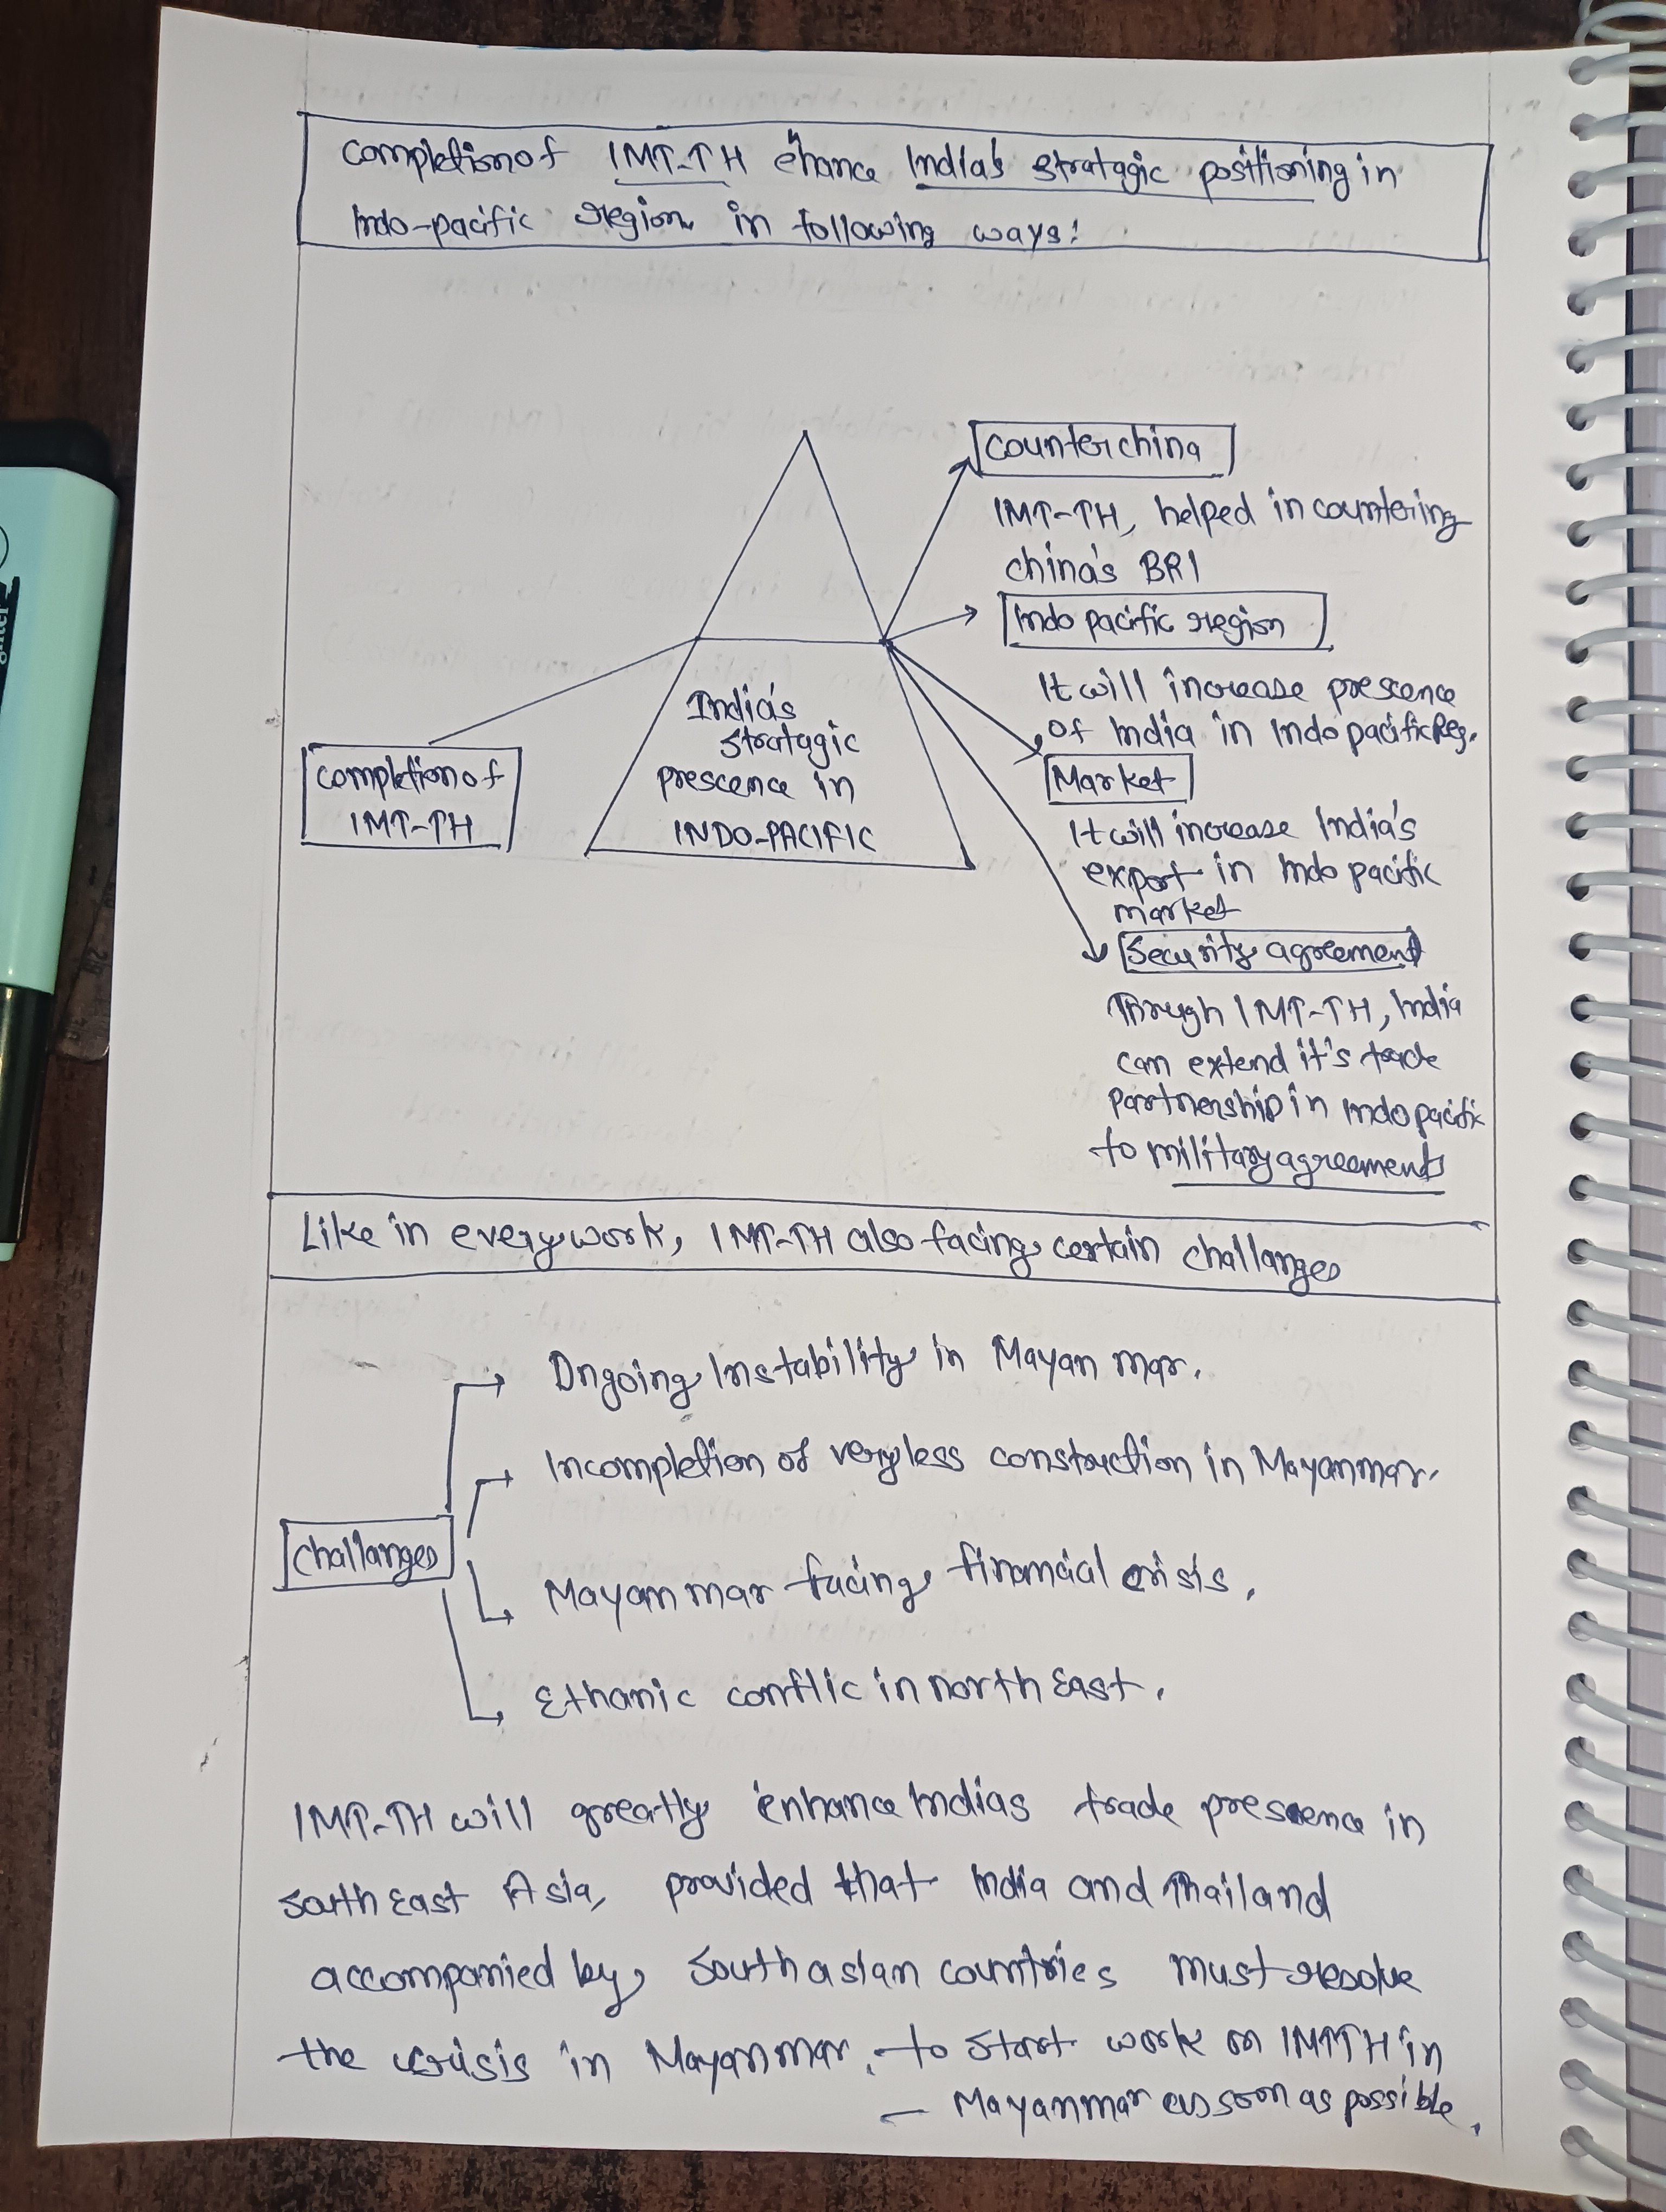 Completion of IMT-TH enhance India's stratagic positioning in
Indo-pacific region in following ways:
Counter china
IMT-TH, helped in countering
china's BRI
Indo pacific region
It will increase prescence
of India in Indo pacific Reg.
Market
It will increase India's
export in Indo pacific
market
Security agreement
Through IMT-TH, India
can extend it's trade
partnership in Indo pacific
to military agreements
India's
stratagic
prescence in
INDO-PACIFIC
Completion of
IMT-TH
Like in every work, IMT-TH also facing certain challanges
Challanges
Ongoing Instability in Mayanmar.
Incompletion of very less construction in Mayanmar.
Mayanmar facing financial crisis.
Ethanic conflic in north East.
IMT-TH will greatly enhance Indias trade presence in
south East Asia, provided that India and Thailand
accompanied by south asian countries must resolve
the crisis in Mayanmar. to start work on IMTTH in
– Mayanmar as soon as possible.